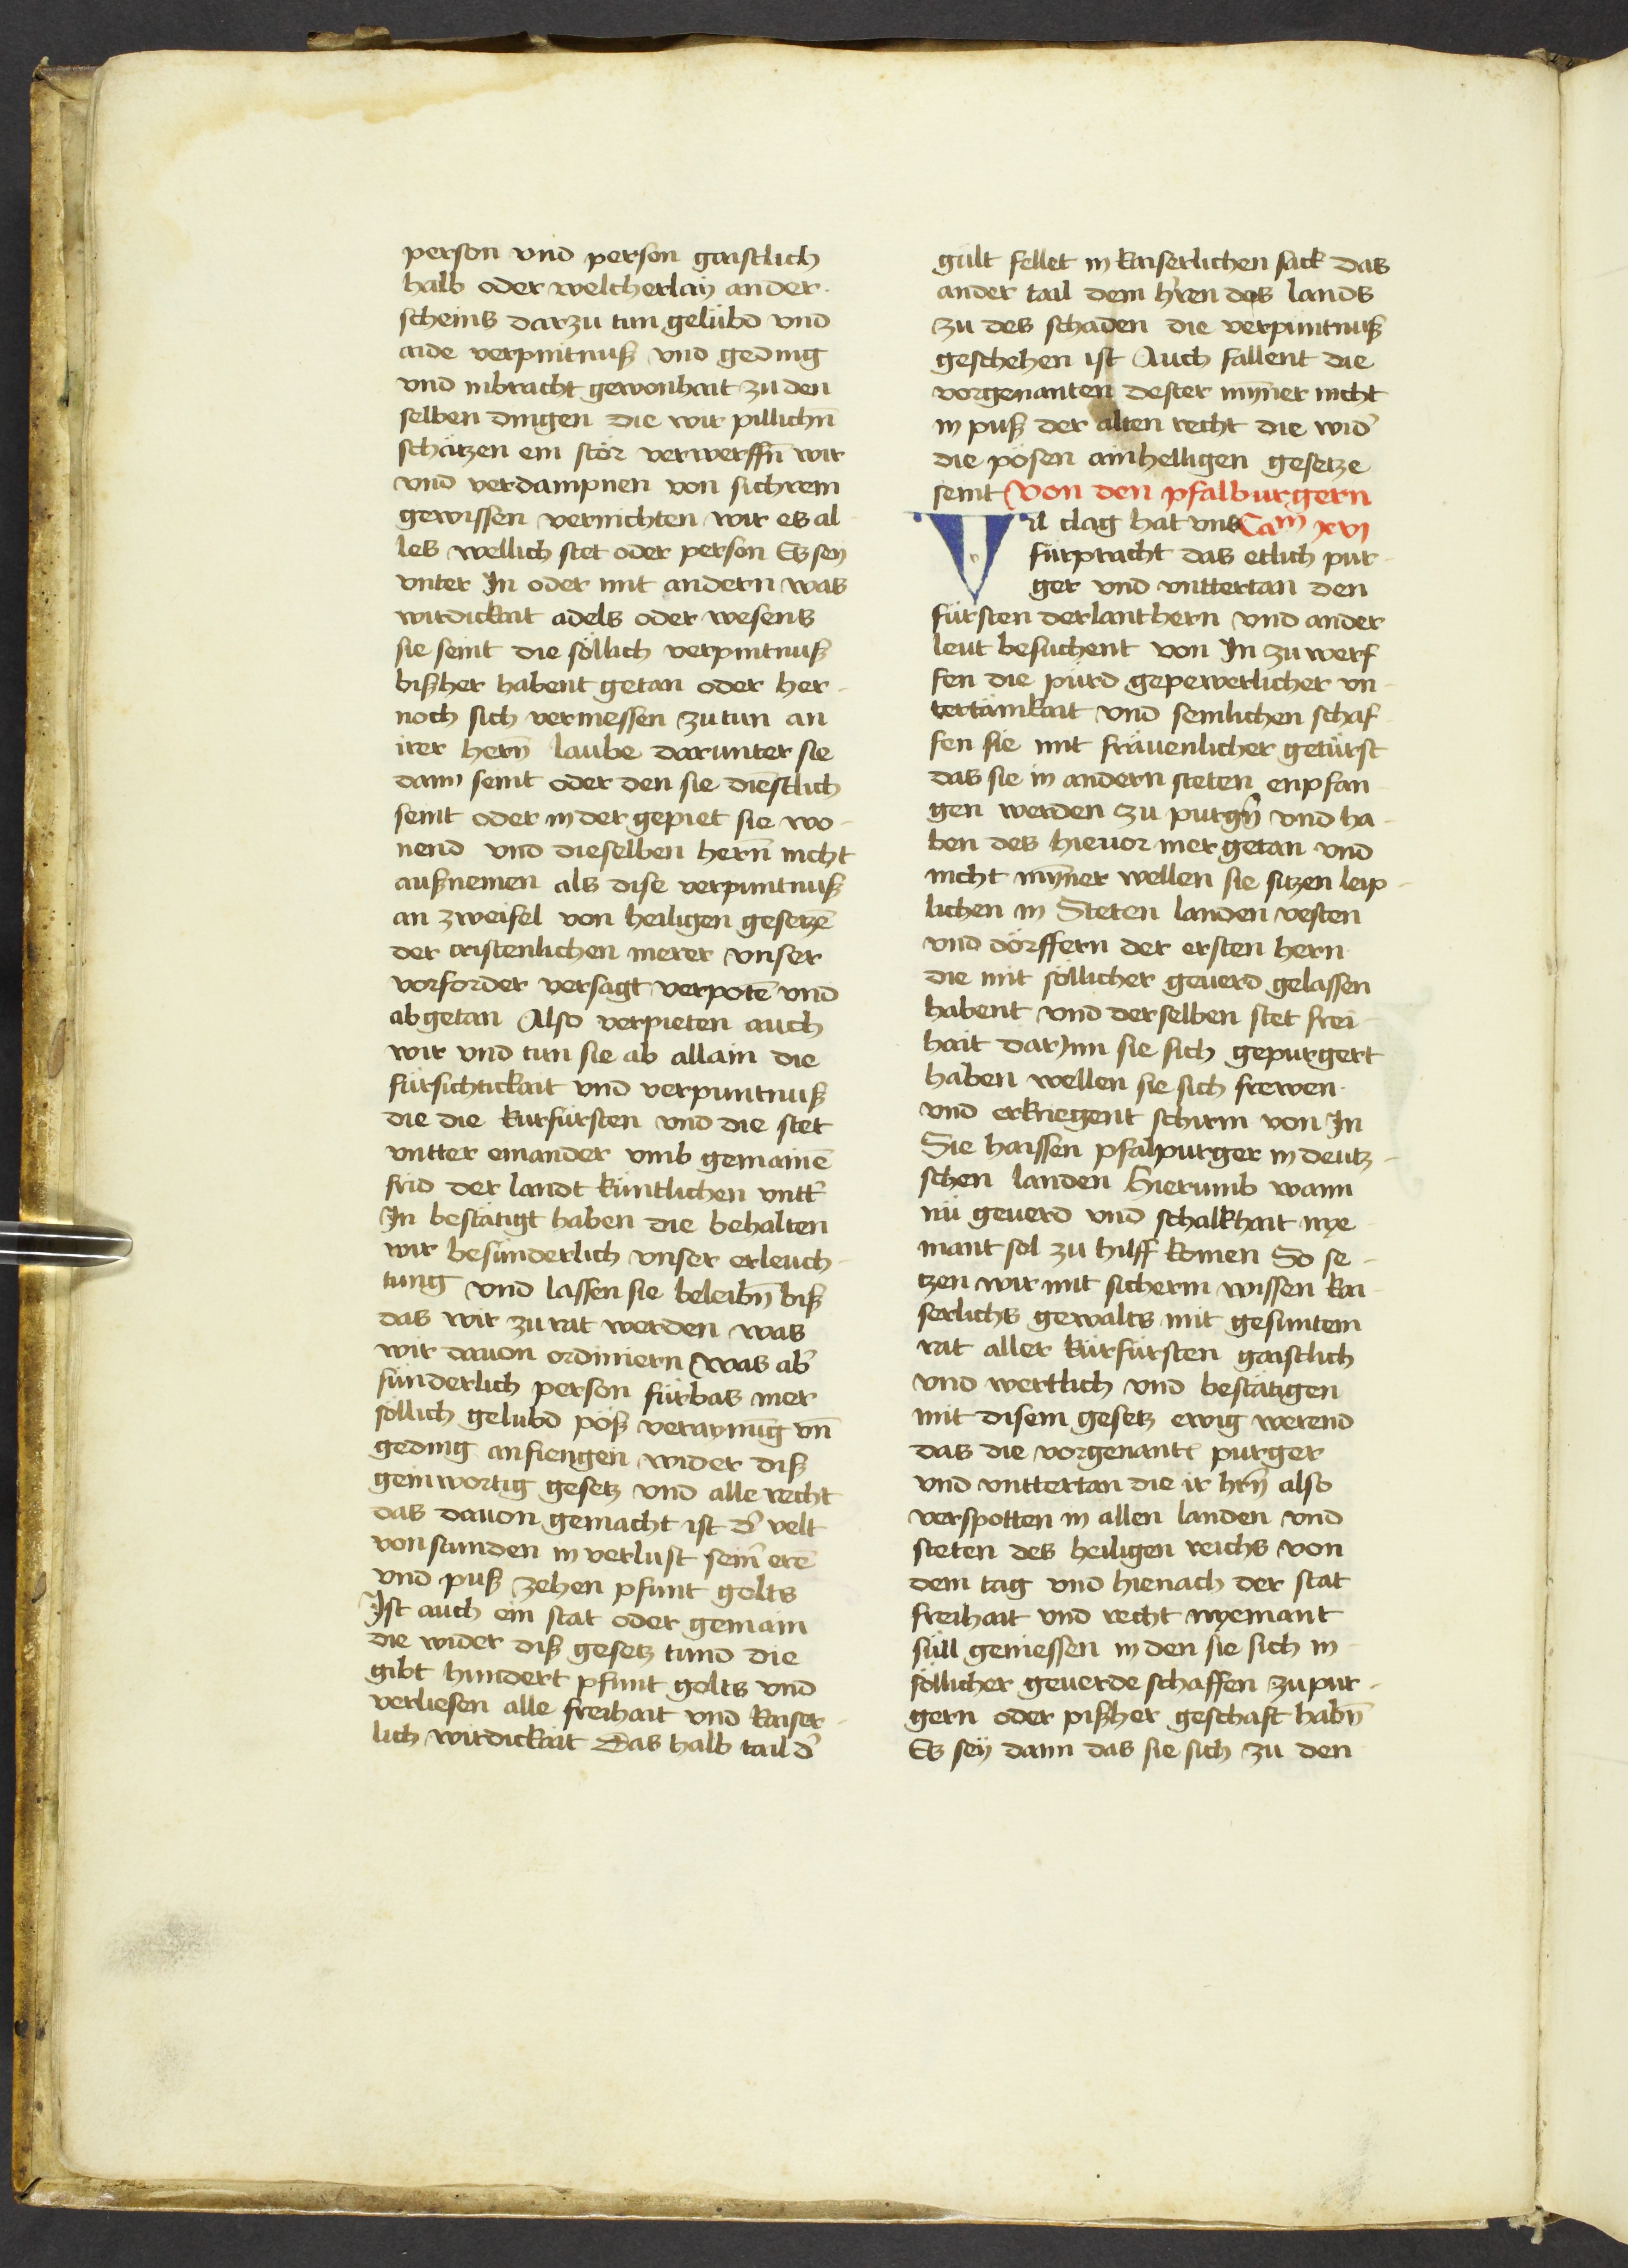 person vnd person gaistlich
halb oder welcherlaÿ ander
scheins darzu tun gelübd vnd
aide verpuntnuß vnd geding
vnd inbracht gewonhait zu den
selben dingen die wir pillichn̄
schätzen ein stör verwerffn̄ wir
vnd verdampnen von sichrem
gewissen vernichten wir es al
les wellich stet oder person Es sey
vnter In oder mit andern was
wirdickait adels oder wesens
sie seint die söllich verpuntnuß
bißher habent getan oder her-
noch sich vermessen zu tun an
irer hern̄ laube darunter sie
dann seint oder den sie dienstlich
seint oder in der gepiet sie wo-
nend vnd dieselben hern̄ nicht
außnemen als dise verpuntnuß
an zweifel von heiligen gesetzē
der cristenlichen merer vnser
vorforder versagt verpotē vnd
abgetan Also verpieten auch
wir vnd tun sie ab allain die
fürsichtickait vnd verpuntnuß
die die kurfürsten vnd die stet
vntter einander vmb gemainē
frid der landt küntlichen vntt'
In bestätigt haben die behalten
wir besünderlich vnser erleuch-
tung vnd lassen sie beleibn̄ biß
das wir zu rat werden was
wir dauon ordiniern Was ab'
sünderlich person fürbas mer
söllich gelubd pöß veraynūg vn̄
geding anfiengen wider diß
geinwortig gesetz vnd alle recht
das dauon gemacht ist d' velt
von stunden in verlust sein' erē
vnd puß zehen pfunt golts
Ist auch ein stat oder gemain
die wider diß gesetz tund die
gibt hundert pfunt golts vnd
verliesen alle freihait vnd kaiser-
lich wirdickait Das halb tail d'
gült fellet in kaiserlichen sack das
ander tail dem h'ren des lands
zu des schaden die verpuntnuß
geschehen ist Auch fallent die
vorgenanten dester mynner nicht
in puß der alten recht die wid'
die pösen ainhelligen gesetze
seint Von den pfalburgern
Vil clag hat vns Cam xvi
fürpracht das etlich pur-
ger vnd vnttertan den
fürsten der lanthern vnd ander
leut besuchent von In zu werf
fen die pürd gepewerlicher vn
tertänikait vnd semlichen schaf
fen sie mit fräuenlicher getürst
das sie in andern steten enpfan
gen werden zu purgn̄ vnd ha-
ben des hieuor mer getan vnd
nicht mynner wellen sie sitzen leip-
lichen in Steten landen vesten
vnd dörffern der ersten hern
die mit söllicher geuerd gelassen
habent vnd derselben stet frei
hait dar Inn sie sich gepurgert
haben wellen sie sich frewen
vnd erkriegent schirm von In
Sie haissen pfalpurger in deutz-
schen landen Hierumb wann
nü geuerd vnd schalkhait nye
mant sol zu hilff komen So se-
tzen wir mit sicherm wissen kai
serlichs gewalts mit gesuntem
rat aller kürfürsten gaistlich
vnd wertlich vnd bestätigen
mit disem gesetz ewig werend
das die vorgenantē purger
vnd vnttertan die ir hrn̄ also
verspotten in allen landen vnd
steten des heiligen reichs von
dem tag vnd hienach der stat
freihait vnd recht nyemant
süll geniessen in den sie sich in
söllicher geuerde schaffen zu pur-
gern oder pißher geschaft habn̄
Es seÿ dann das sie sich zu den